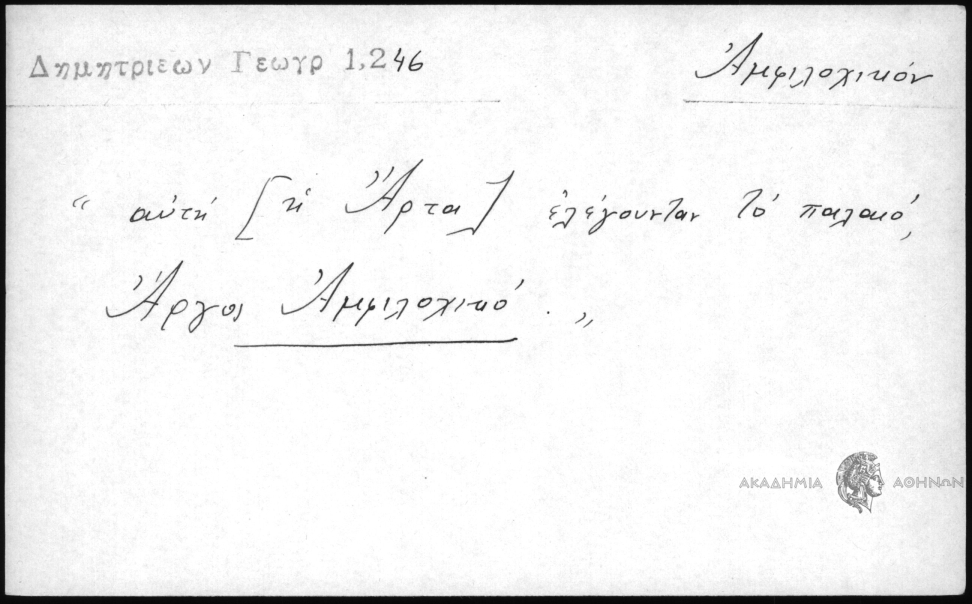 Δημητριεων Γεωγρ 1,246
Ἀμφιλοχικόν
“ αὐτή [ἡ Ἄρτα] ἐλέγουνταν τό παλαιό,
Ἄργος Ἀμφιλοχικό . „
ΑΚΑΔΗΜΙΑ ΑΘΗΝΩΝ